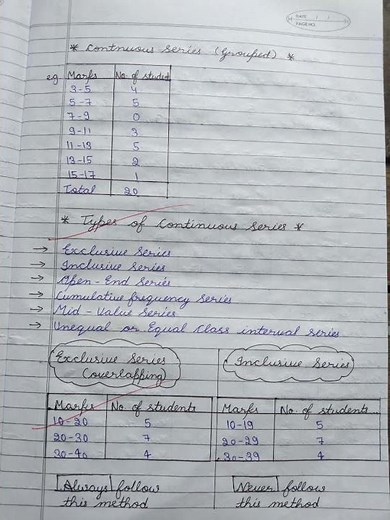 DATE
PAGE NO.
* Continuous Series (Grouped) *
eg. Marks No. of student
3-5 4
5-7 5
7-9 0
9-11 3
11-13 5
13-15 2
15-17 1
Total 20
* Types of Continuous Series *
→ Exclusive Series
→ Inclusive Series
→ Open-End Series
→ Cumulative frequency Series
→ Mid-Value Series
→ Unequal or Equal Class interval series
Exclusive Series
(Overlapping)
Inclusive Series
Marks No. of students
10-20 5
20-30 7
30-40 4
Marks No. of students
10-19 5
20-29 7
30-39 4
Always follow
this method
Never follow
this method